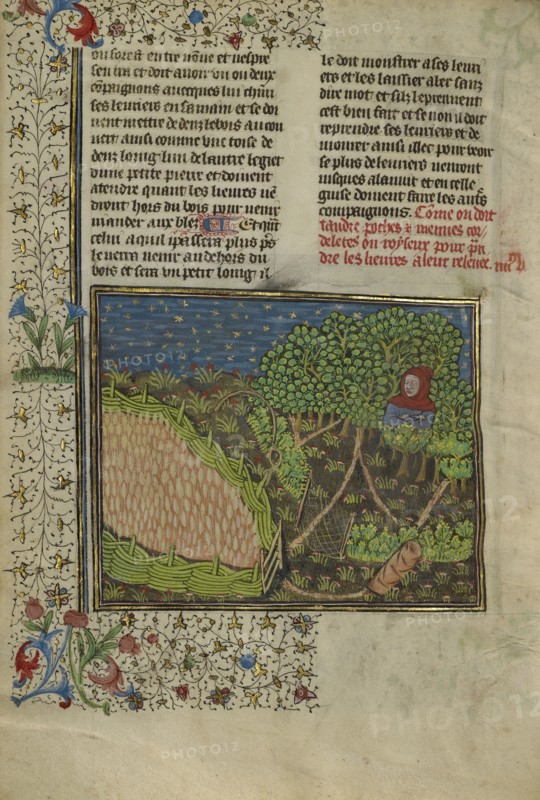 ou forest entre nõne et vespre
seu lui et doit auoir vn ou deux
compaignons auecques lui chũn
ses leuriers en sa main et se doi
uent mettre de denz le bois au cou
uert ainsi comme vne toise de
denz loing lun de lautre le giet
dune petite pierre et doiuent
atendre quant les lieures uẽ
dront hors du bois pour uenir
mander aux blez Et quãt
celui a qui il passera plus pͤs
le verra uenir au dehors du
bois et sera vn petit loing il
le doit monstrer a ses leuri
ers et les laissier aler sanz
dire mot et silz le prennent
cest bien fait et se non il doit
reprendre ses leuriers et de
mourer ainsi illec pour veoir
se plus de leuriers uenront
iusques a la nuit et en celle
guise doiuent faire les aut̃s
compaignons. Cõme on doit
tandre poches et menues cor
deletes ou royseux pour pr̃n
dre les lieures a leur releuee. iiiiˣˣ
PHOTO12
PHOTO12
PHOTO12
PHOTO12
PHOTO12
PHOTO12